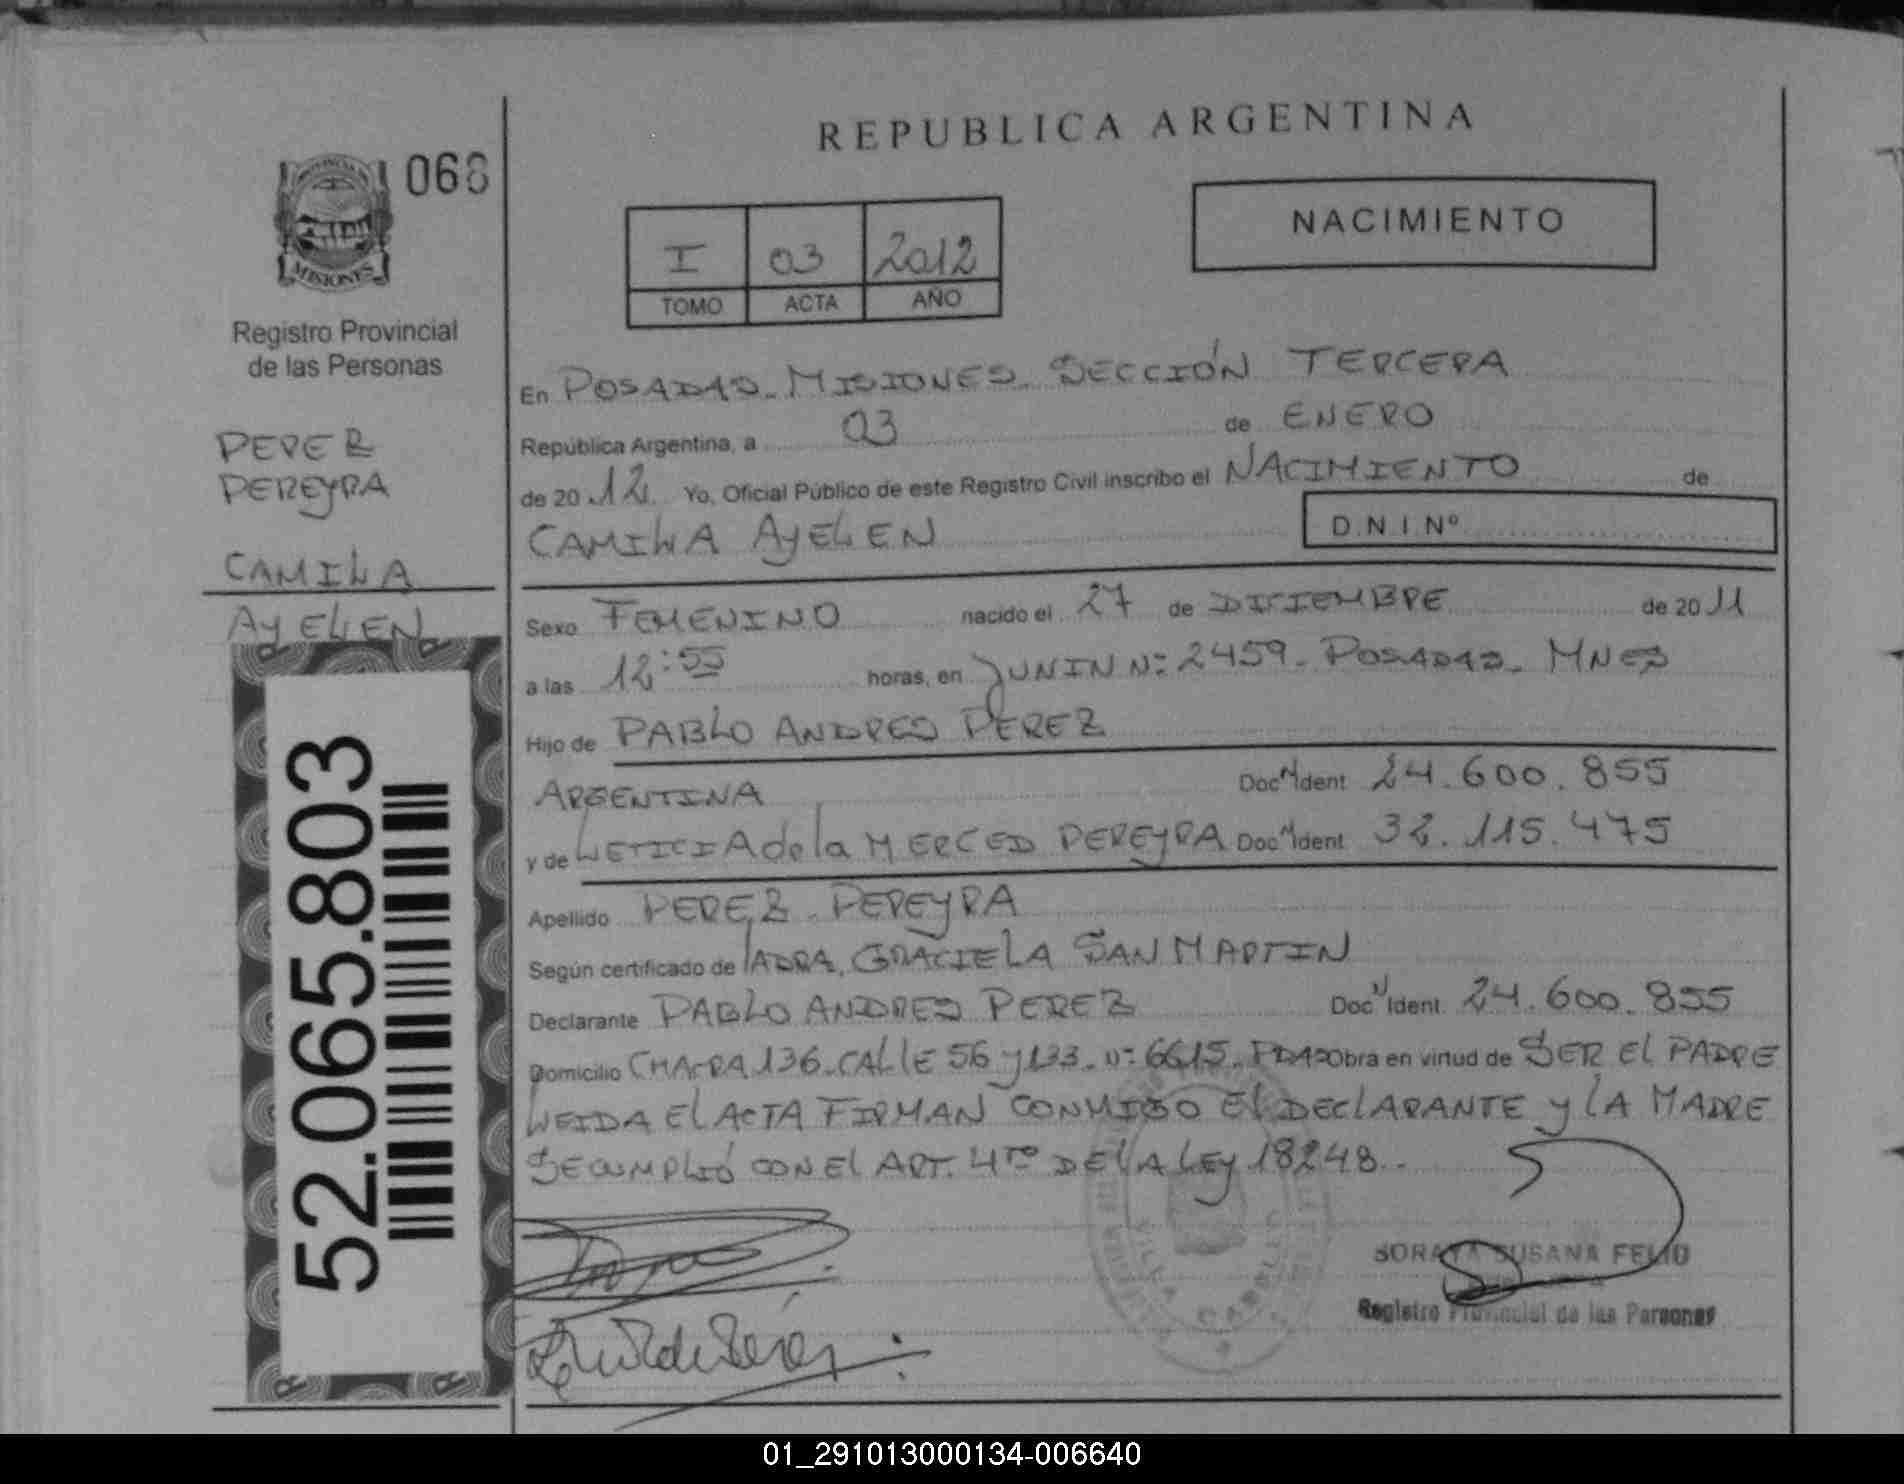 REPUBLICA ARGENTINA
068
PROVINCIA DE
MISIONES
Registro Provincial
de las Personas
NACIMIENTO
I 03 2012
TOMO ACTA AÑO
PEREZ
PEREYRA
CAMILA
AYELEN
52.065.803
En POSADAS - MISIONES - SECCIÓN TERCERA
República Argentina, a 03 de ENERO
de 2012. Yo, Oficial Público de este Registro Civil inscribo el NACIMIENTO de
CAMILA AYELEN D.N.I. Nº
Sexo FEMENINO nacido el 27 de DICIEMBRE de 2011
a las 12:55 horas, en JUNIN Nº 2459 - POSADAS - MNES
Hijo de PABLO ANDRES PEREZ
ARGENTINA Doc N Ident 24.600.855
y de LETICIA de la MERCED PEREYRA Doc N Ident 32.115.475
Apellido PEREZ - PEREYRA
Según certificado de la DRA. GRACIELA SAN MARTIN
Declarante PABLO ANDRES PEREZ Doc N Ident. 24.600.855
Domicilio CHACRA 136 - CALLE 56 y 133 - Nº 6615 - PDAS Obra en virtud de SER EL PADRE
LEIDA EL ACTA FIRMAN CONMIGO EL DECLARANTE y LA MADRE
SE CUMPLIÓ CON EL ART. 4to DE LA LEY 18248.
VILLA CABELLO
SORAYA SUSANA FELIU
Registro Provincial de las Personas
01_291013000134-006640